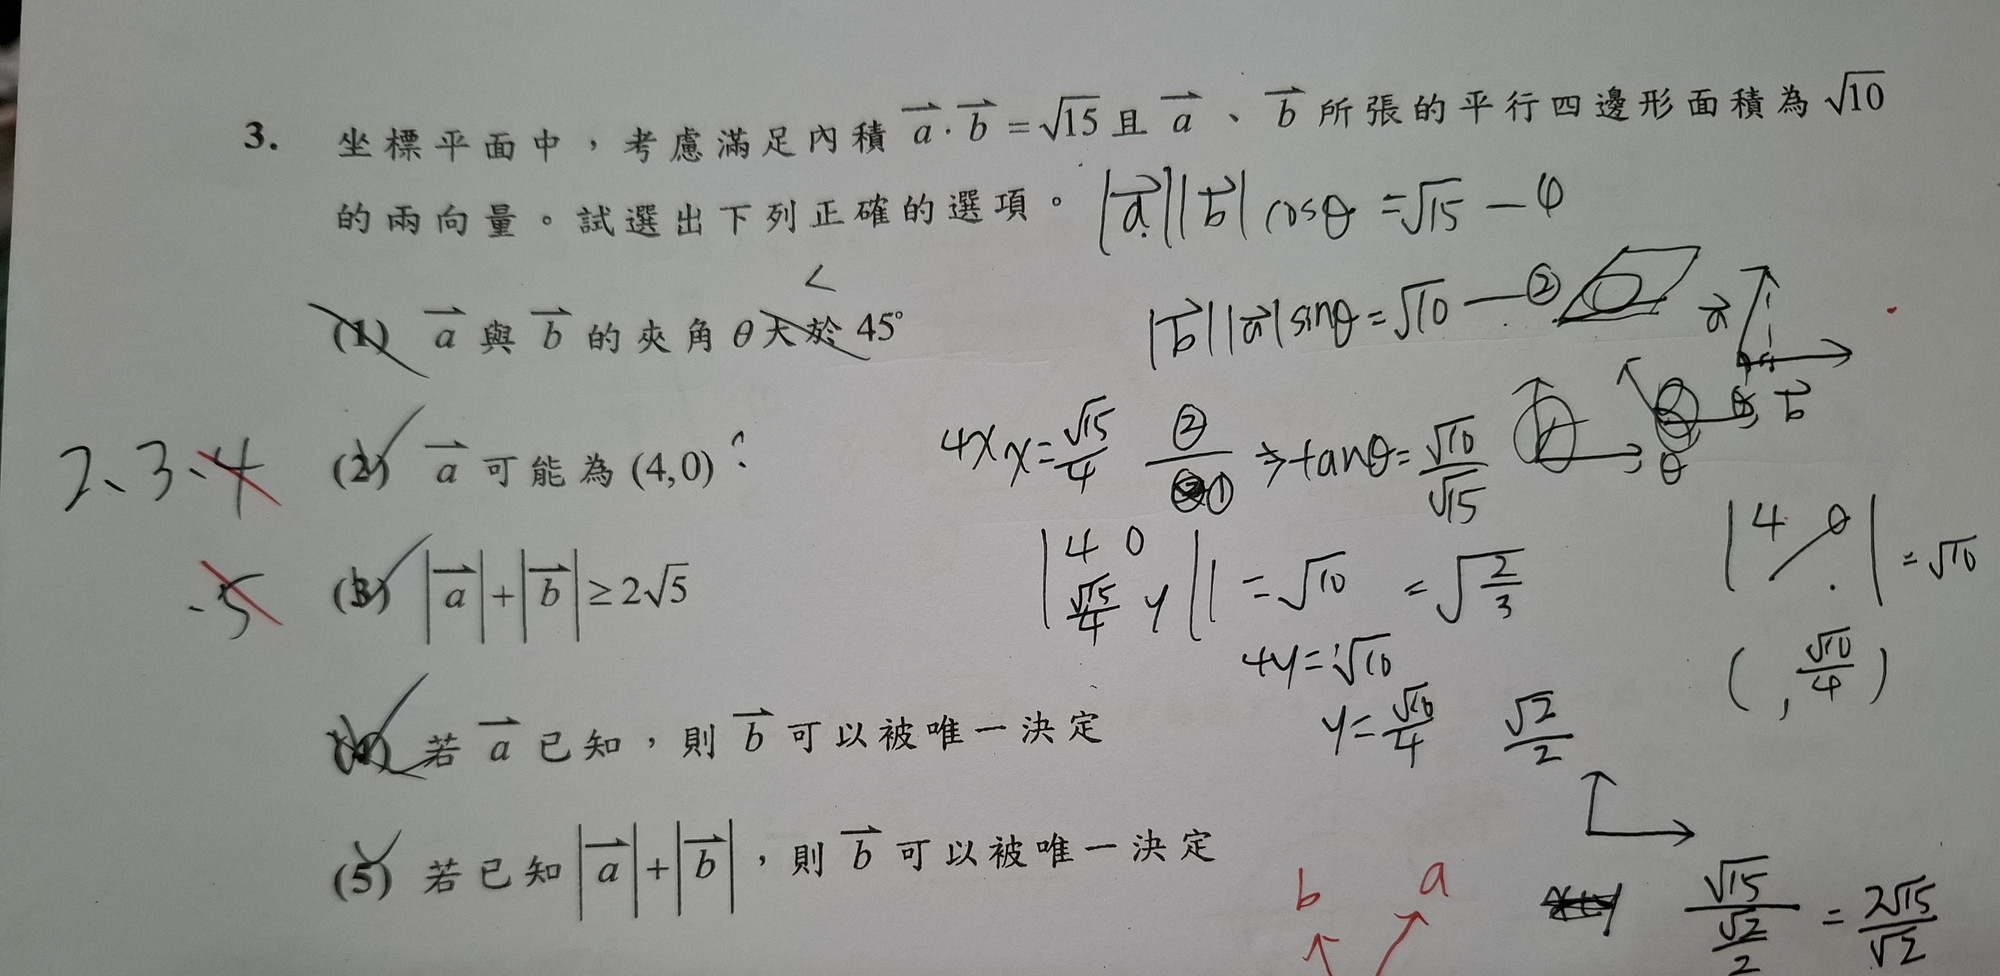 3. 坐標平面中，考慮滿足內積 $\overrightarrow{a}\cdot\overrightarrow{b}=\sqrt{15}$ 且 $\overrightarrow{a}$、$\overrightarrow{b}$ 所張的平行四邊形面積為 $\sqrt{10}$
的兩向量。試選出下列正確的選項。
$|\overrightarrow{a}||\overrightarrow{b}|\cos\theta=\sqrt{15}$ —
$|\overrightarrow{b}||\overrightarrow{a}|\sin\theta=\sqrt{10}$ — ②
<
(1) $\overrightarrow{a}$ 與 $\overrightarrow{b}$ 的夾角 θ 大於 45°
$\overrightarrow{a}$
θ $\overrightarrow{b}$
θ
2、3、4
-5
(2) $\overrightarrow{a}$ 可能為 (4,0)
4x x=$\frac{\sqrt{15}}{4}$ $\frac{②}{①}$ ⇒ tanθ=$\frac{\sqrt{10}}{\sqrt{15}}$
(3) $|\overrightarrow{a}|+|\overrightarrow{b}|\geq 2\sqrt{5}$
| 4 0
$\frac{\sqrt{15}}{4}$ y || = $\sqrt{10}$ = $\sqrt{\frac{2}{3}}$
| 4 0 | = $\sqrt{10}$
4y=$\sqrt{10}$
( , $\frac{\sqrt{10}}{4}$ )
y=$\frac{\sqrt{10}}{4}$ $\frac{\sqrt{2}}{2}$
(4) 若 $\overrightarrow{a}$ 已知，則 $\overrightarrow{b}$ 可以被唯一決定
(5) 若已知 $|\overrightarrow{a}|+|\overrightarrow{b}|$，則 $\overrightarrow{b}$ 可以被唯一決定
b a
$\frac{\sqrt{15}}{\frac{\sqrt{2}}{2}}$ = $\frac{2\sqrt{15}}{\sqrt{2}}$